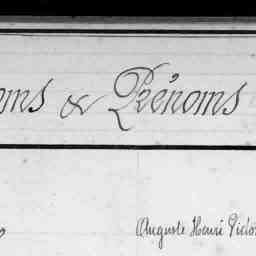 oms & Prénoms
Auguste Henri Victor